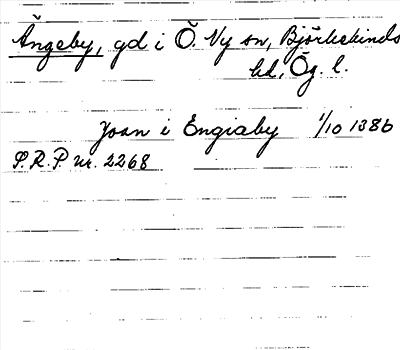 Ängeby, gd i Ö. Ny sn, Björkekinds
hd, Ög. l.
Joan i Engiaby 1/10 1386
S.R.P. nr. 2268